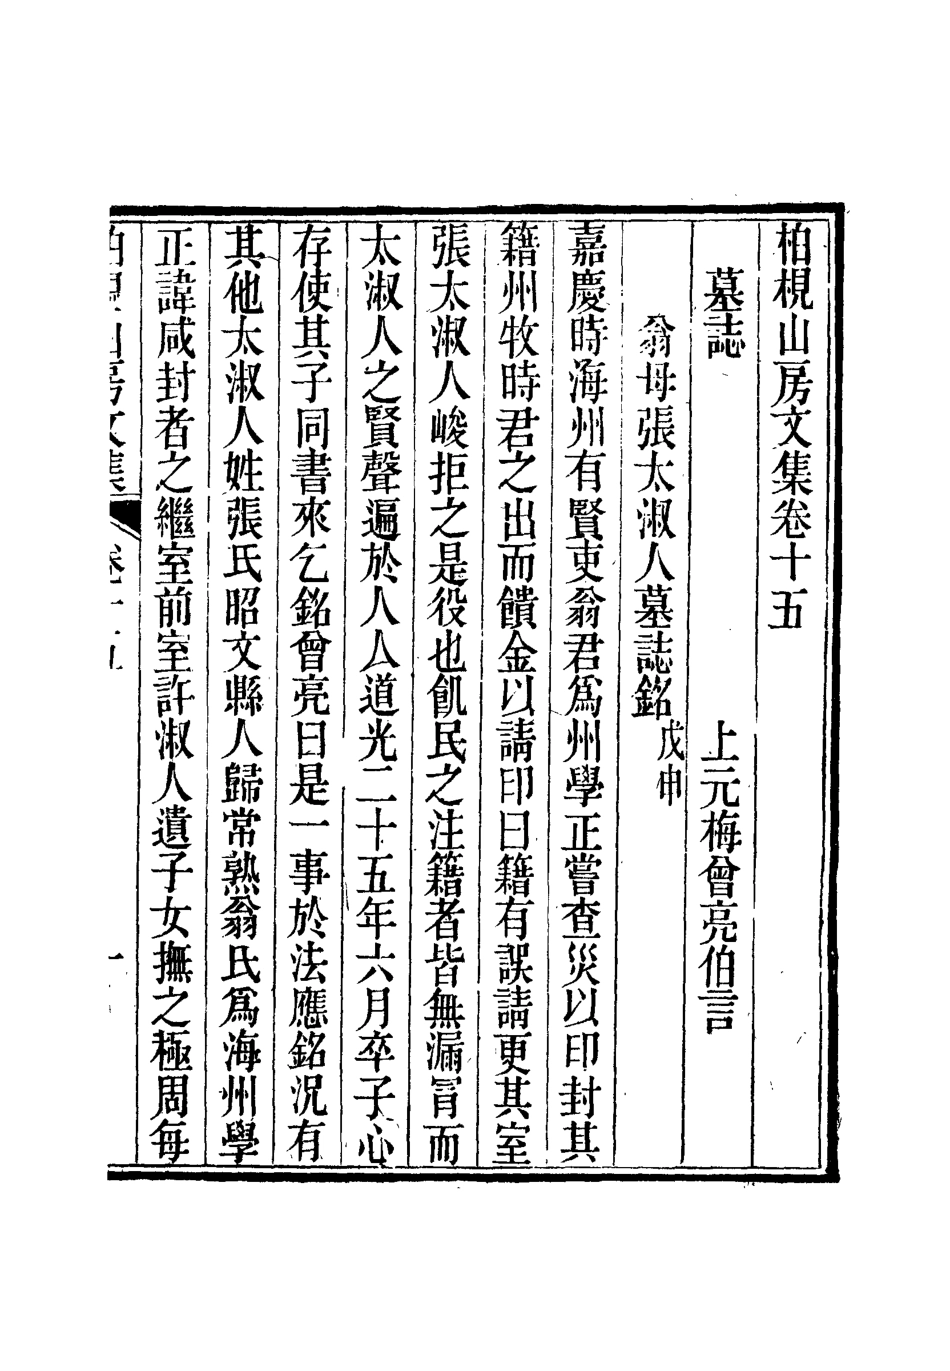 柏梘山房文集卷十五
墓誌
上元梅曾亮伯言
翁母張太淑人墓誌銘戊申
嘉慶時海州有賢吏翁君爲州學正嘗查災以印封其
籍州牧時君之出而饋金以請印曰籍有誤請更其室
張太淑人峻拒之是役也飢民之注籍者皆無漏冐而
太淑人之賢聲遍於人人道光二十五年六月卒子心
存使其子同書來乞銘曾亮曰是一事於法應銘況有
其他太淑人姓張氏昭文縣人歸常熟翁氏爲海州學
正諱咸封者之繼室前室許淑人遺子女撫之極周每
柏梘山房文集 卷十五 一